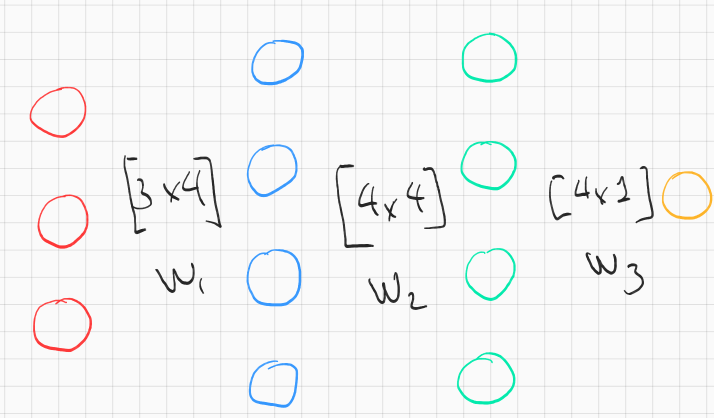 [3x4]
W1
[4x4]
W2
[4x1]
W3